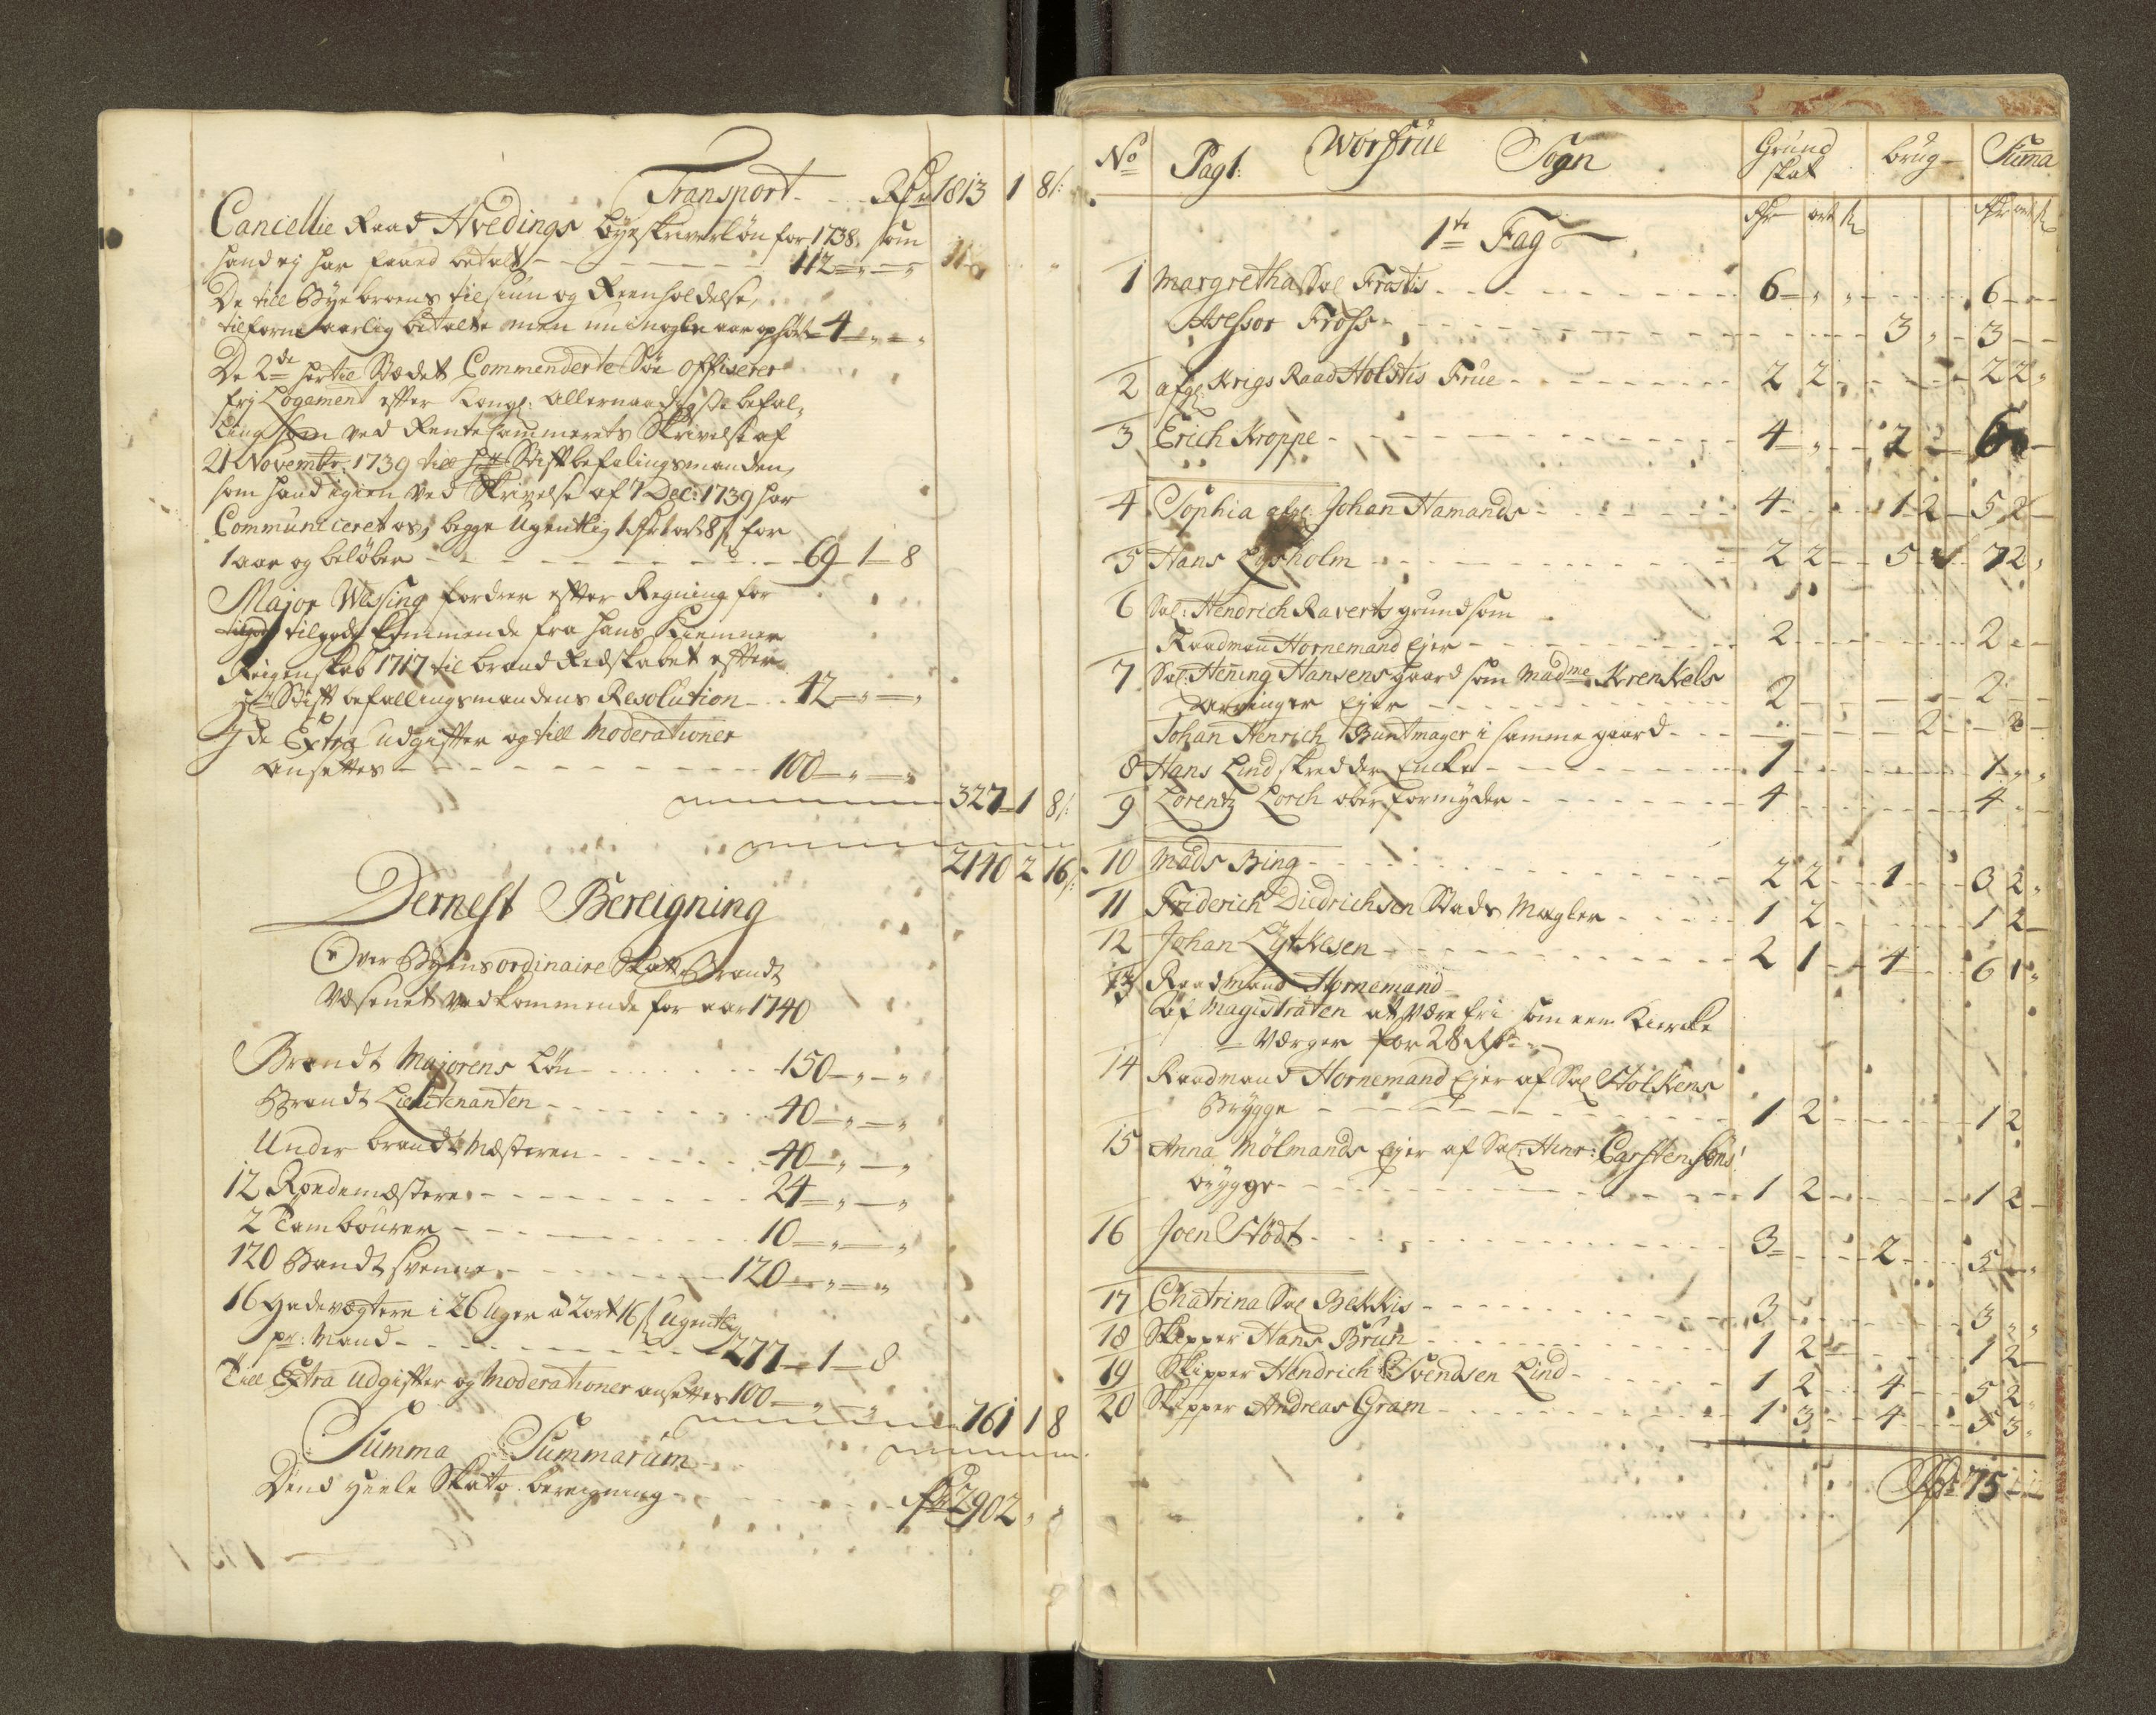 Transport - - - Rdr 1813 1 8 s:
Cancellie Raad Hvedings Byeskriverløn for 1738, som
hand ej har faaed betalt - - - 112 - „ - „
De till Bye broens tilsiun og Reenholdelse,
tilforn aarlig betalte men nu i nogle aar ophørt - 4 - „ - „
De 2de her til Stædet Commenderte Søe Officerer
frj Logement efter Kongl: Allernaadigste befal-
ling som ved Rente Cammerets Skrivelse af
21 Novembr: 1739 till Hr Stiftbefalingsmanden,
som hand igien ved Skrivelse af 7 Dec: 1739 har
Communiceret os, begge Ugentlig 1 Rdr 1 ort 8 s for
1 aar og beløber - - - 69 - 1 - 8
Major Wessing fordrer efter Regning for
tilgode kommende fra hans Kiemner
Reigenskab 1717 til brand Redskabet efter
Hr Stift befallingsmandens Resolution - - 42 - „ - „
J de Extra Udgifter og till Moderationer
Ansettes - - - 100 - „ - „
327 - 1 8 s:
2140 2 16 s:
Dernest Bereigning
Over Byens ordinaire Skatt Brandt
Væsenet vedkommende for aar 1740
Brandt Majorens Løn - - - 150 - „ - „
Brandt Lieutenanten - - - 40 - „ - „
Under brandt Mæsteren - - - 40 - „ - „
12 Rodemæstere - - - 24 - „ - „
2 Tambourer - - - 10 - „ - „
120 Bandt svenne - - - 120 - „ - „
16 Gadevægtere i 26 Uger à 2 ort 16 s Ugentlig
pr: Mand - - - 277 - 1 - 8
Till Extra Udgifter og Moderationer ansettes 100 - „ - „
761 1 8
Summa Summarum
Dend heele Skatte bereigning - - - Rdr 2902 „ „
No Pag 1: Worfrue Sogn Grund skat brug - Suma
Rdr ort s Rdr ort s
1te Fag
1 Margretha Sal Frostis - - - 6 - „ „ - - - 6 - -
Assessor Frost - - - 3 „ - 3 - -
2 afgl: Krigs Raad Holstis Frue - - - 2 2 - - - 2 2 „
3 Erich Kroppe - - - 4 - „ - 2 - 6 -
4 Sophia afgl: Johan Hamands - - - 4 - - - 1 2 - 5 2 -
5 Hans Lysholm - - - 2 2 - - 5 - 7 2 „
6 Sal: Hendrich Raverts grund som
Raadman Hornemand Ejer - - - 2 - - - 2 - -
7 Sal: Hening Hansens gaard som Madme Krenkels
Arvinger Ejer - - - 2 - - - 2 - -
Johan Henrich Buntmager i samme gaard - - - 2 - - 2 -
8 Hans Lind skredder Encke - - - 1 - - - 1 - „
9 Lorentz Lorch ober formynder - - - 4 - - - 4 - -
10 Mads Bing - - - 2 2 - - 1 - - 3 2 „
11 Friderich Diedrichsen Stads Mægler - - - 1 2 - - - 1 2 -
12 Johan Lytkesen - - - 2 1 - - 4 - - 6 1 „
13 Raadmand Hornemand
Af Magistraten at være fri som een Kiercke
Værger for 28 Rdr - -
14 Raadmand Hornemand Ejer af Sal Holkens
Brygge - - - 1 2 - - - 1 2
15 Anna Mølmands Ejer af Sal: Henr: Carstensens
brygge - - - 1 2 - - - 1 2 -
16 Joen Stødt - - - 3 - - - 2 - - 5 - „
17 Chatrina Sal Bekkis - - - 3 - - - 3 „ „
18 Skipper Hans Brun - - - 1 2 - - - 1 2 -
19 Skipper Hendrich Svendsen Lind - - - 1 2 - - 4 - - 5 2 „
20 Skipper Andreas Gram - - - 1 3 - - 4 - - 5 3 „
Rdr 75 - -